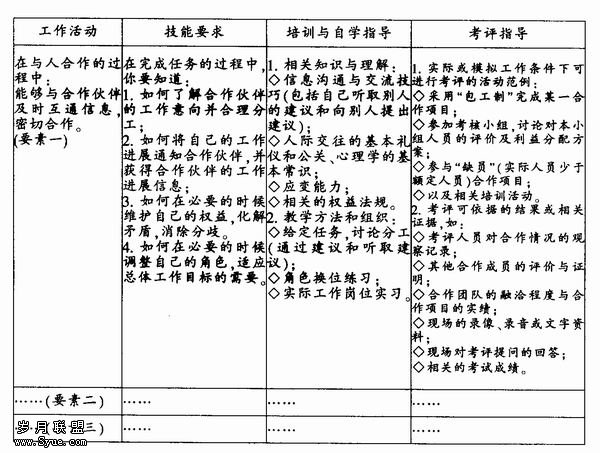 工作活动
技能要求
培训与自学指导
考评指导
在与人合作的过
程中:
能够与合作伙伴
及时互通信息,
密切合作。
(要素一)
在完成任务的过程中,
你要知道:
1. 如何了解合作伙伴
的工作意向并合理分
工;
2. 如何将自己的工作
进展通知合作伙伴,并
获得合作伙伴的工作
进展信息;
3. 如何在必要的时候
维护自己的权益,化解
矛盾,消除分歧。
4. 如何在必要的时候
调整自己的角色,适应
总体工作目标的需要。
1. 相关知识与理解:
◇信息沟通与交流技
巧(包括自己听取别人
的建议和向别人提出
建议);
◇人际交往的基本礼
仪和公关、心理学的基
本常识;
◇应变能力;
◇相关的权益法规。
2. 教学方法和组织:
◇给定任务,讨论分工
(通过建议和听取建
议);
◇角色换位练习;
◇实际工作岗位实习。
1. 实际或模拟工作条件下可
进行考评的活动范例:
◇采用“包工制”完成某一合
作项目;
◇参加考核小组,讨论对本小
组人员的评价及利益分配方
案;
◇参与“缺员”(实际人员少于
额定人员)合作项目;
◇以及相关培训活动。
2. 考评可依据的结果或相关
证据,如:
◇考评人员对合作情况的观
察记录;
◇其他合作成员的评价与证
明;
◇合作团队的融洽程度与合
作项目的实绩;
◇现场的录像、录音或文字资
料;
◇现场对考评提问的回答;
◇相关的考试成绩。
……(要素二)
……
……
……
三)
……
……
……
岁月联盟
www.Syue.com